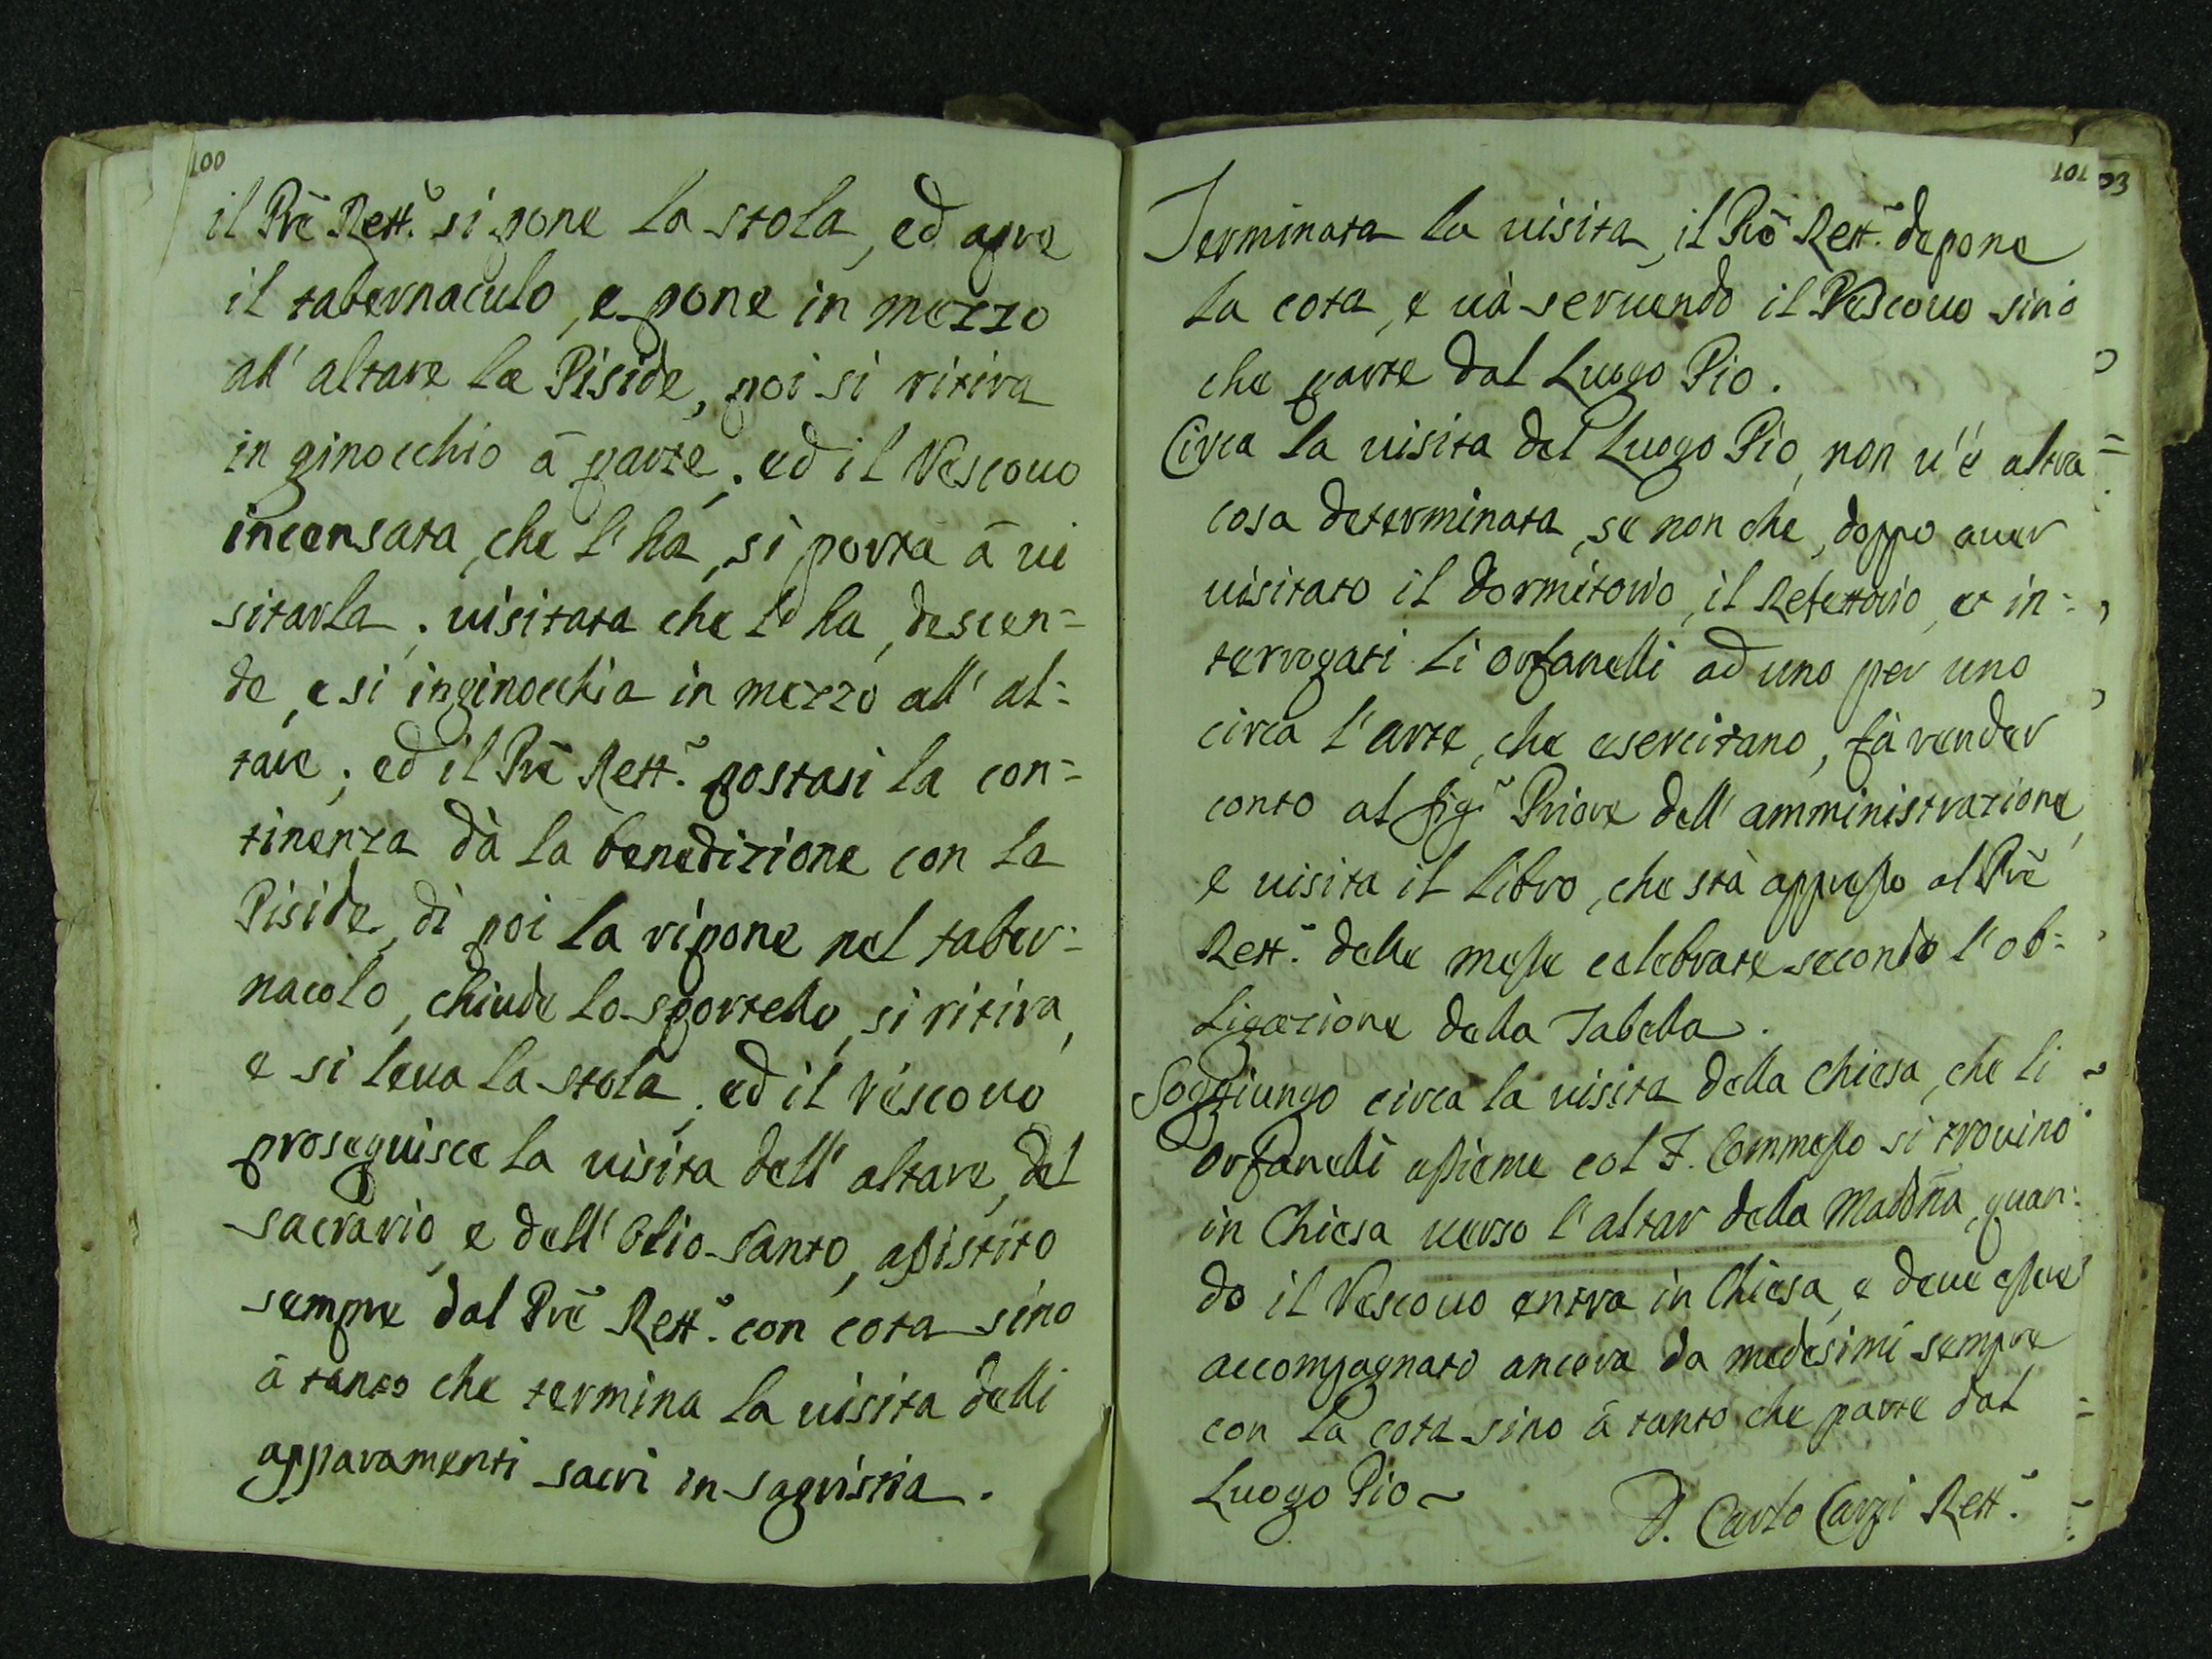 100
il Prē Rett.ʳ si pone la stola, ed apre
il tabernaculo, e pone in mezzo
all' altare la Piside, poi si ritira
in ginocchio à parte; ed il Vescouo
incensata, che l'hà, si porta à ui
sitarla; uisitata che l'ha, descen=
de, e si inginocchia in mezzo all' al=
tare; ed il Prē Rett.ʳ postasi la con=
tinenza dà la benedizione con la
Piside, di poi la ripone nel taber=
nacolo, chiude lo sportello, si ritira,
e si leua la stola; ed il Vescouo
proseguisce la uisita dell' altare, del
sacrario, e dell' Olio Santo, assistito
sempre dal Prē Rett.ʳ con cota sino
à tanto che termina la uisita delli
apparamenti sacri in sagristia.
101 03
Terminata la uisita, il Prē Rett.ʳ depone
la cota, e uà seruendo il Vescouo sino
che parte dal Luogo Pio.
Circa la uisita del Luogo Pio, non u'è altra
cosa determinata, se non che, doppo auer
uisitato il dormitorio, il Refettorio, et in=
terrogati li orfanelli ad uno per uno
circa l'arte, che esercitano, fà render
conto al Sig.ʳ Priore dell' amministrazione,
e uisita il libro, che stà appresso al Prē
Rett.ʳ delle messe celebrate secondo l'ob=
ligazione della Tabella.
Soggiungo circa la uisita della Chiesa, che li
orfanelli assieme col F. Commesso si trouino
in Chiesa uerso l'altar della Madōna, quan=
do il Vescouo entra in Chiesa, e deue essere
accompagnato ancora da medesimi sempre
con la cota sino à tanto che parte dal
Luogo Pio ~
D. Carlo Carpi Rett.ʳ